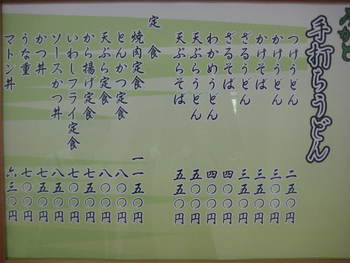 手打ちうどん
つけうどん 二五〇円
かけうどん 三〇〇円
かけそば 三五〇円
ざるうどん 三五〇円
ざるそば 四〇〇円
わかめうどん 四〇〇円
天ぷらうどん 五五〇円
天ぷらそば 五五〇円
定食
焼肉定食 一一五〇円
とんかつ定食 八〇〇円
天ぷら定食 八〇〇円
から揚げ定食 七五〇円
いわしフライ定食 七〇〇円
ソースかつ丼 八五〇円
かつ丼 七五〇円
うな重 七〇〇円
マトン丼 六三〇円